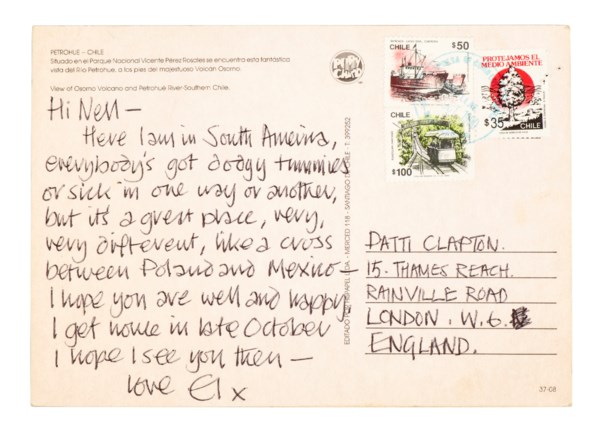 PETROHUE - CHILE
Situado en el Parque Nacional Vicente Pérez Rosales se encuentra esta fantástica
vista del Río Petrohue, a los pies del majestuoso Volcán Osorno.
View of Osorno Volcano and Petrohue River-Southern Chile.
Hi Nell —
Here I am in South America,
everybody's got dodgy tummies
or sick in one way or another,
but it's a great place, very,
very different, like a cross
between Poland and Mexico —
I hope you are well and happy
I get home in late October
I hope I see you then —
love El x
CHILE $50
CHILE
$100
PROTEJAMOS EL
MEDIO AMBIENTE
$35 CHILE
MERCED 118 - SANTIAGO DE CHILE - T. 399252
PATTI CLAPTON.
15. THAMES REACH.
RAINVILLE ROAD
LONDON. W.6.
ENGLAND.
37-08